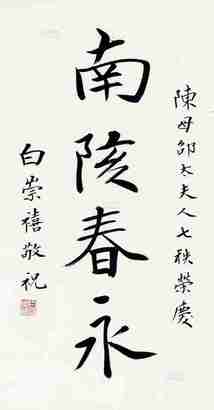 陳母邵太夫人七秩榮慶
南陔春永
白崇禧敬祝